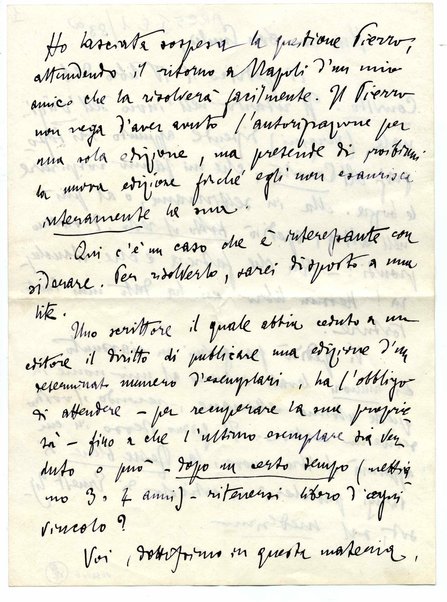 Ho lasciata sospesa la questione Pierro,
attendendo il ritorno a Napoli d'un mio
amico che la risolverà facilmente. Il Pierro
non nega d'aver avuto l'autorizzazione per
una sola edizione, ma pretende di proibirmi
la nuova edizione finché egli non esaurisca
interamente la sua.
Qui c'è un caso che è interessante con
siderare. Per risolverlo, sarei disposto a una
lite.
Uno scrittore il quale abbia ceduto a un
editore il diritto di publicare una edizione d'un
determinato numero d'esemplari, ha l'obbligo
di attendere – per recuperare la sua proprie
tà – fino a che l'ultimo esemplare sia ven
duto o può – dopo un certo tempo (mettia
mo 3. 4 anni) – ritenersi libero d'ogni
vincolo?
Voi, dottissimo in questa materia,